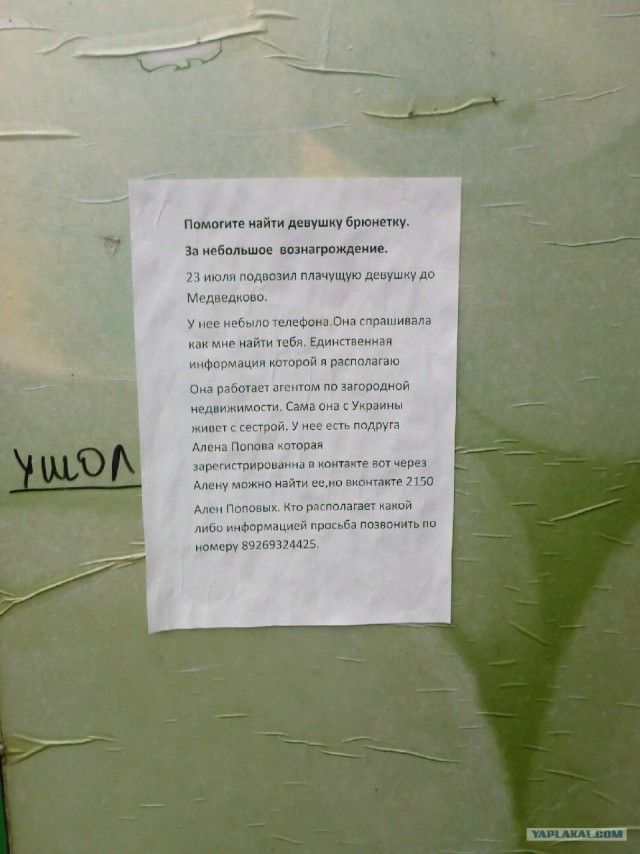 Помогите найти девушку брюнетку.
За небольшое вознагрождение.
23 июля подвозил плачущую девушку до
Медведково.
У нее небыло телефона.Она спрашивала
как мне найти тебя. Единственная
информация которой я располагаю
Она работает агентом по загородной
недвижимости. Сама она с Украины
живет с сестрой. У нее есть подруга
Алена Попова которая
зарегистрированна в контакте вот через
Алену можно найти ее,но вконтакте 2150
Ален Поповых. Кто располагает какой
либо информацией просьба позвонить по
номеру 89269324425.
УШОЛ
YAPLAKAL.COM